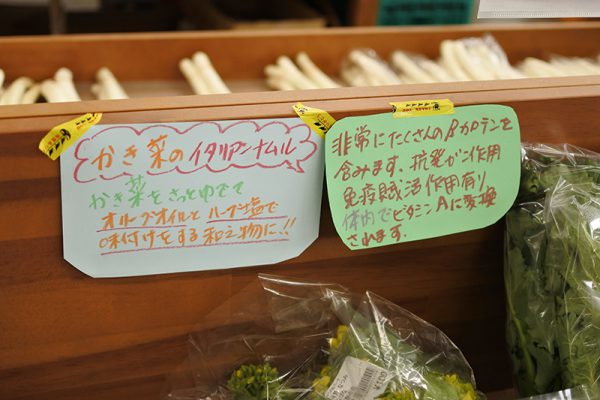 かき菜のイタリアンナムル
かき菜をさっとゆでて
オリーブオイルとハーブ塩で
味付けをする和え物に!!
非常にたくさんのβカロテンを
含みます。抗発がん作用
免疫賦活作用有り
体内でビタミンAに変換
されます.